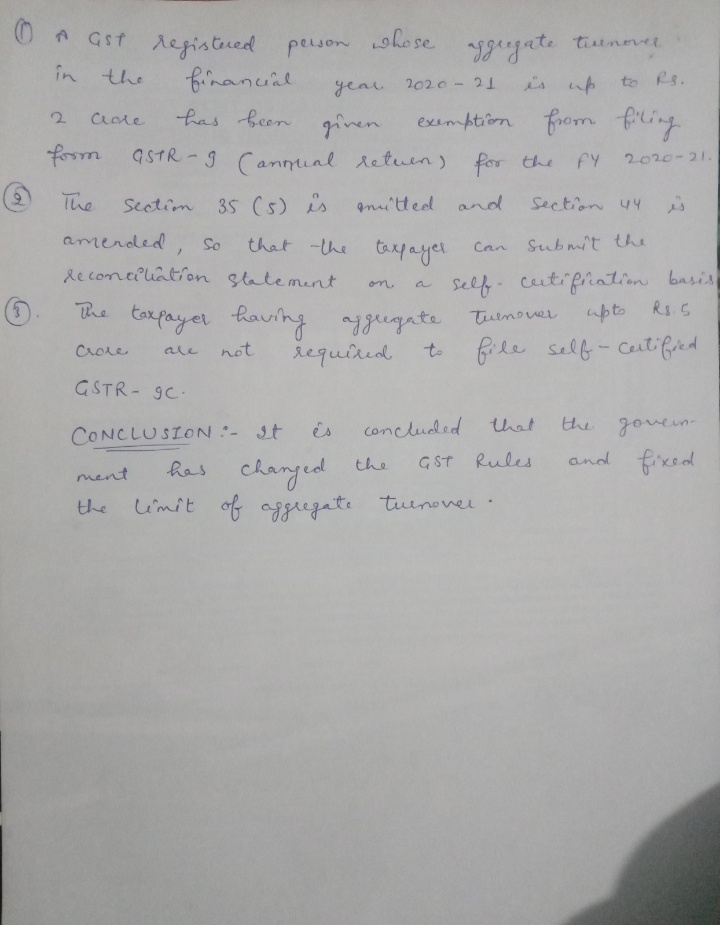 ① A GST registered person whose aggregate turnover
in the financial year 2020-21 is up to Rs.
2 crore has been given exemption from filing
form GSTR-9 (annual return) for the FY 2020-21.
② The Section 35 (5) is omitted and Section 44 is
amended, so that the taxpayer can submit the
reconciliation statement on a self-certification basis
③. The taxpayer having aggregate turnover upto Rs.5
crore are not required to file self-certified
GSTR-9C.
CONCLUSION:- It is concluded that the govern-
ment has changed the GST Rules and fixed
the limit of aggregate turnover.